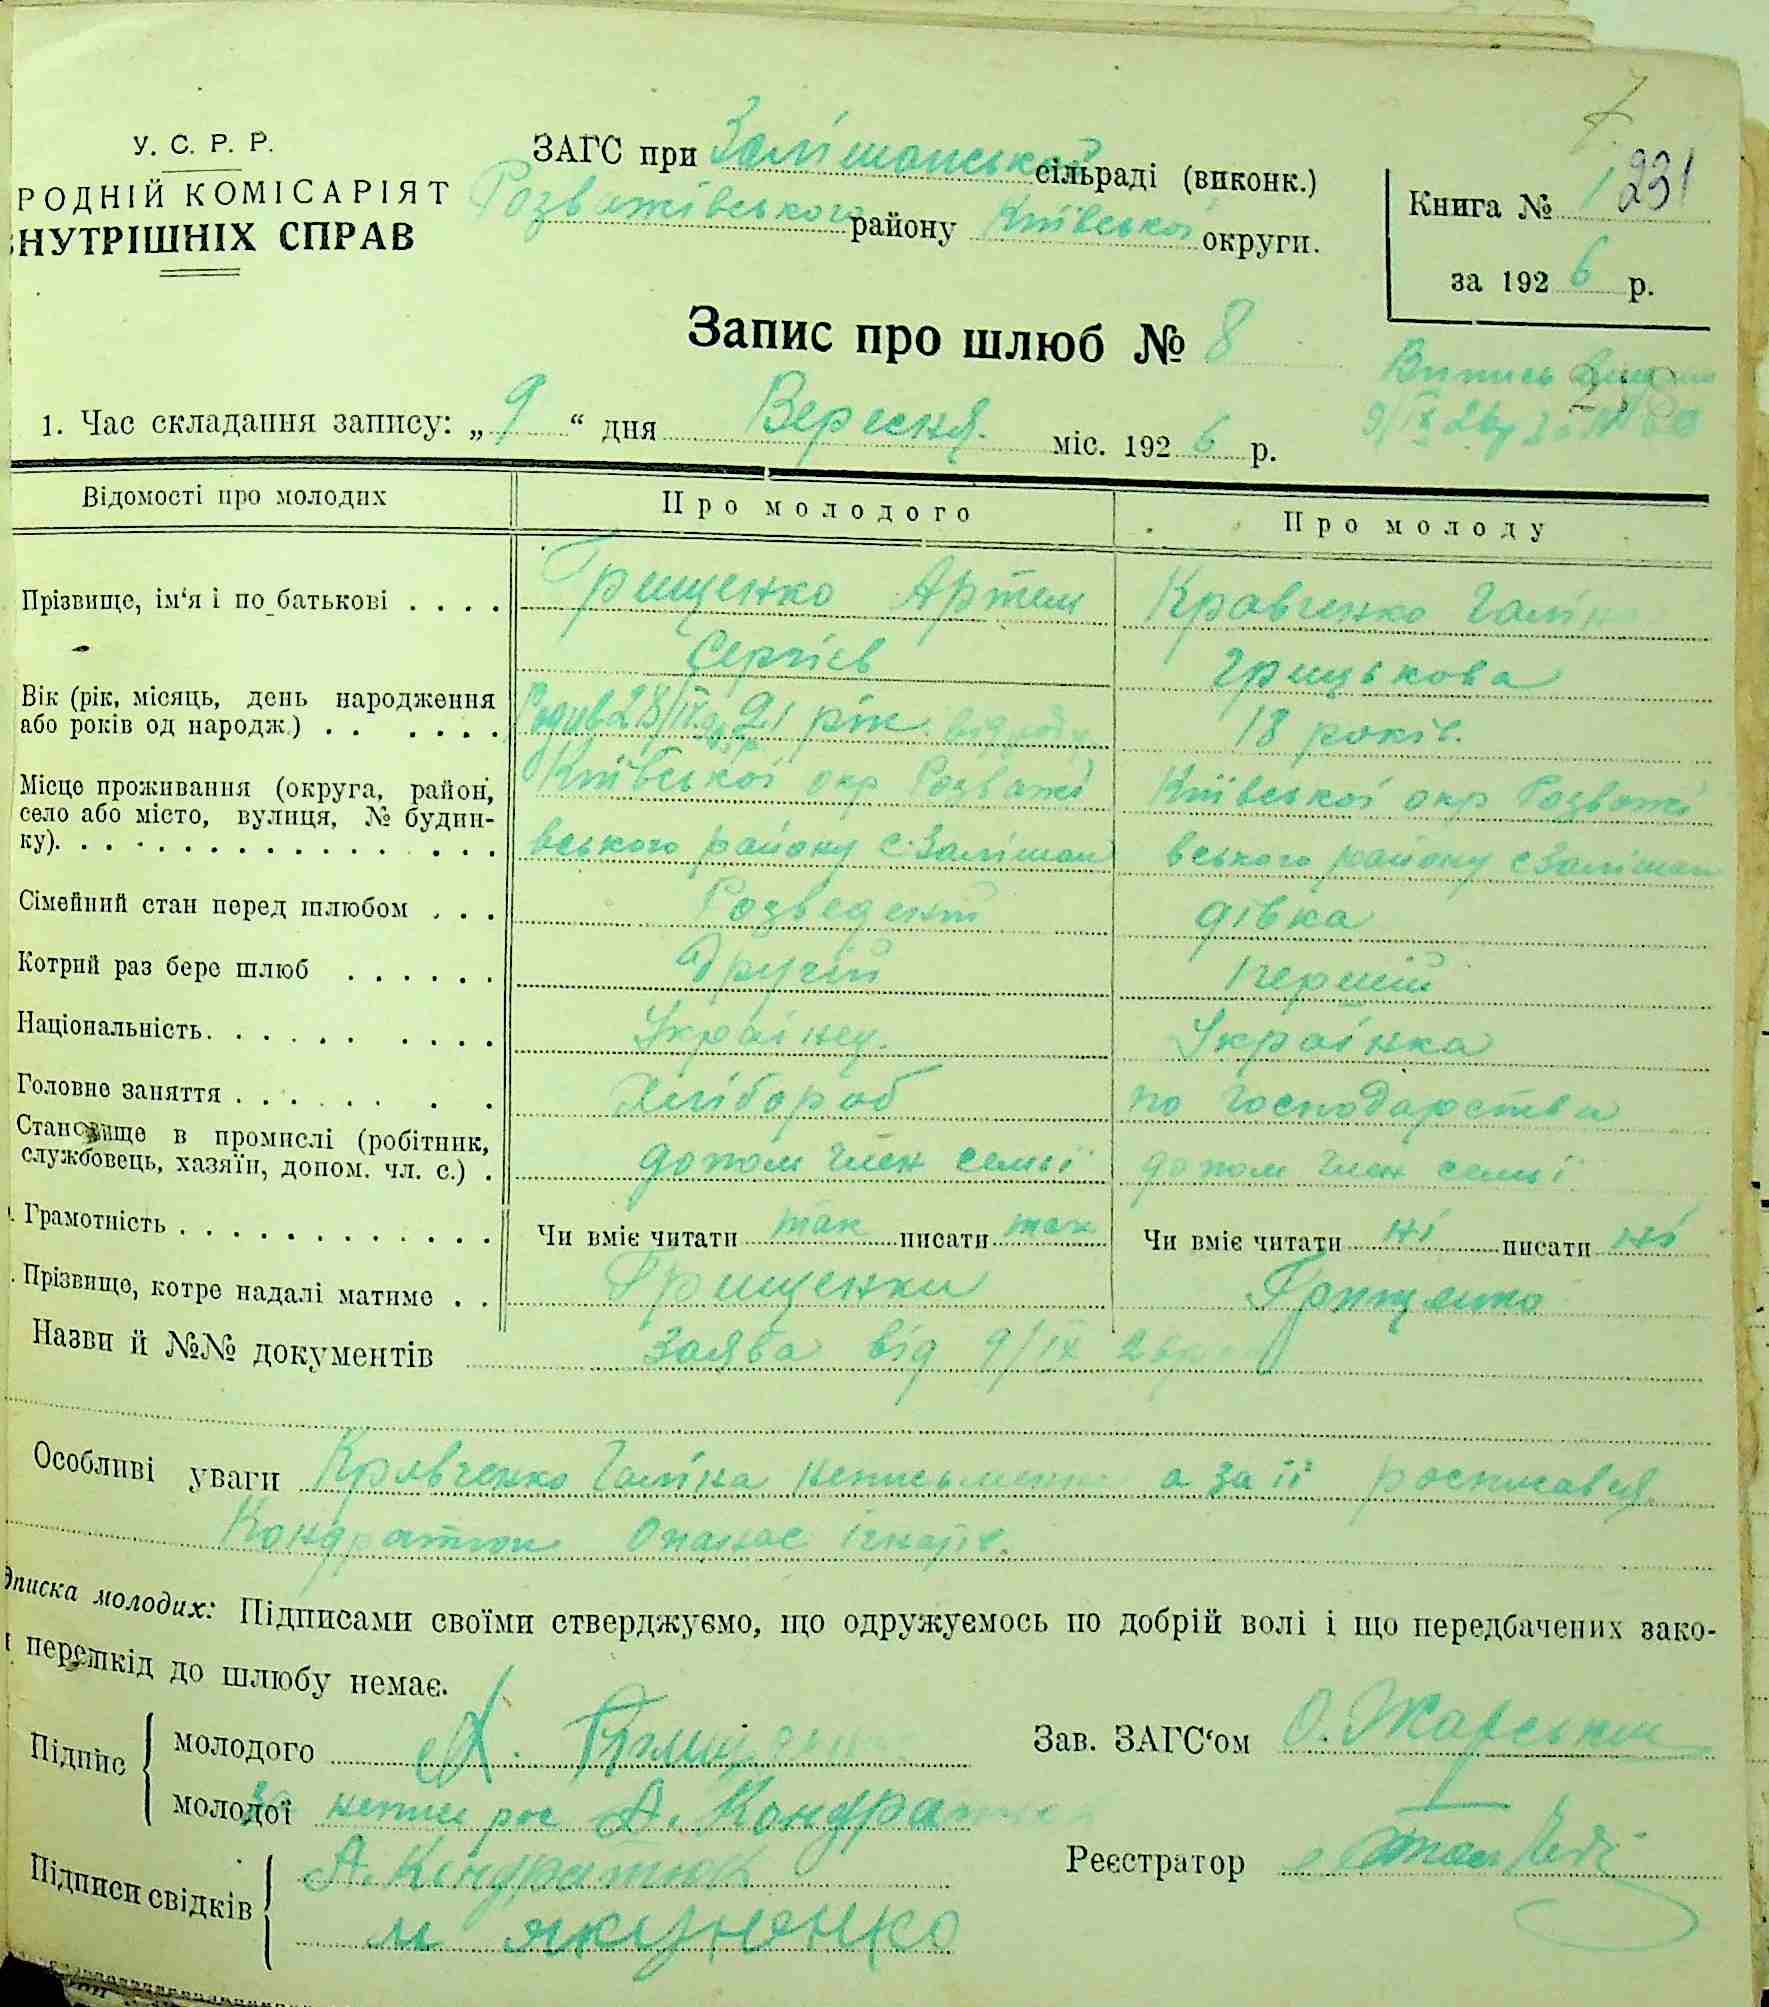 У. С. Р. Р.
РОДНІЙ КОМІСАРІЯТ
НУТРІШНІХ СПРАВ
ЗАГС при Залішанській сільраді (виконк.)
Розважівського району Київської округи.
7
Книга № 1 231
за 1926 р.
Запис про шлюб № 8
Випись
218
1. Час складання запису: „9“ дня Вересня. міс. 1926 р.
9/IX 26р
Відомості про молодих Про молодого Про молоду
Прізвище, ім‘я і по батькові . . . . Грищенко Артем Кравченко Галіна
Сергієв Грицькова
Вік (рік, місяць, день народження
або років од народж.) . . . . . . 28/IV 21 рік 18 років.
Місце проживання (округа, район, Київської окр Розважі Київської окр Розважі
село або місто, вулиця, № будин-
ку). . . . . . . . . . . . . . . вського району с. Залішан вського району с Залішан
Сімейний стан перед шлюбом . . . Розведений дівка
Котрий раз бере шлюб . . . . . . Другий Перший
Національність. . . . . . . . . . Українец. Українка
Головне заняття . . . . . . . . Хлібороб по господарстви
Становище в промислі (робітник,
службовець, хазяїн, допом. чл. с.) . допом член семьї допом член семьї
. Грамотність . . . . . . . . . . . . Чи вміє читати так писати так Чи вміє читати ні писати ні
. Прізвище, котре надалі матиме . . Грищенко Грищенко
Назви й №№ документів заява від 9/IX 26р
Особливі уваги Кравченко Галіна неписьменна а за її росписався
Кондратюк Опанас Ігнатів.
дписка молодих: Підписами своїми стверджуємо, що одружуємось по добрій волі і що передбачених зако-
перешкід до шлюбу немає.
Підпис молодого А. Грищенко
Зав. ЗАГС‘ом О. Жарський
молодої за непис рос А. Кондратюк
Реєстратор
Підписи свідків А. Кондратюк
м якуненко